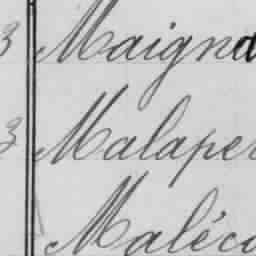 3 Maigna
3 Malaper
Maléco